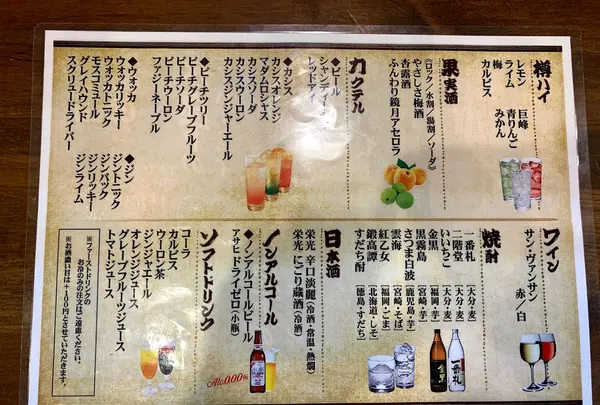 樽ハイ
レモン
ライム
梅
カルピス
巨峰
青りんご
みかん
果実酒
《ロック/水割/湯割/ソーダ》
やさしさ梅酒
杏露酒
ふんわり鏡月アセロラ
カクテル
◆ビール
シャンディーガフ
レッドアイ
◆カシス
カシスオレンジ
マダムロシャス
カシスソーダ
カシスウーロン
カシスジンジャーエール
◆ピーチツリー
ピーチグレープフルーツ
ピーチソーダ
ピーチウーロン
ファジーネーブル
◆ウォッカ
ウォッカリッキー
ウォッカトニック
モスコミュール
グレイハウンド
スクリュードライバー
◆ジン
ジントニック
ジンバック
ジンリッキー
ジンライム
ワイン
サン・ヴァンサン 赤/白
焼酎
一番札 [大分・麦]
二階堂 [大分・麦]
いいちこ [大分・麦]
金黒 [福岡・芋]
黒霧島 [宮崎・芋]
さつま白波 [鹿児島・芋]
雲海 [宮崎・そば]
紅乙女 [福岡・ごま]
鍛高譚 [北海道・しそ]
すだち酎 [徳島・すだち]
日本酒
栄光 辛口淡麗(冷酒・常温・熱燗)
栄光 にごり蔵酒(冷酒)
ノンアルコール
◆ノンアルコールビール
アサヒドライゼロ(小瓶)
Alc.0.00%
ソフトドリンク
コーラ
カルピス
ウーロン茶
ジンジャエール
オレンジジュース
グレープフルーツジュース
トマトジュース
※ファーストドリンクの
お冷のみの注文はご遠慮ください。
※お酒濃い目は+100円とさせていただきます。
金黒
一番札